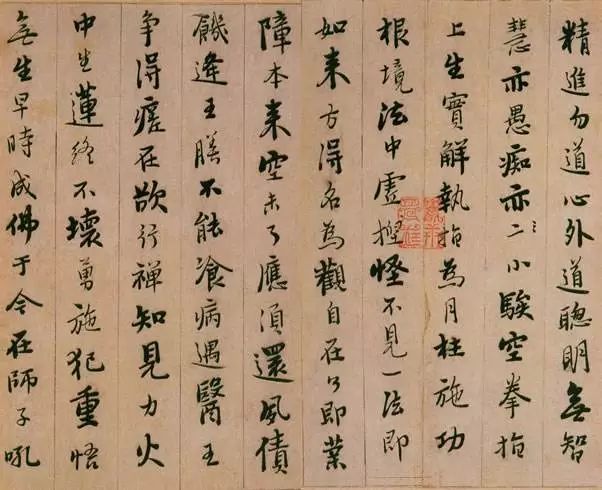 精進勿道心外道聰明無智
慧亦愚痴亦二小騃空拳指
上生實解執指為月枉施功
根境法中虛捏怪不見一法即
如来方得名為觀自在了即業
障本来空未了應須還夙債
饑逢王膳不能飡病遇醫王
争得瘥在欲行禅知見力火
中生蓮終不壞勇施犯重悟
無生早時成佛于今在師子吼